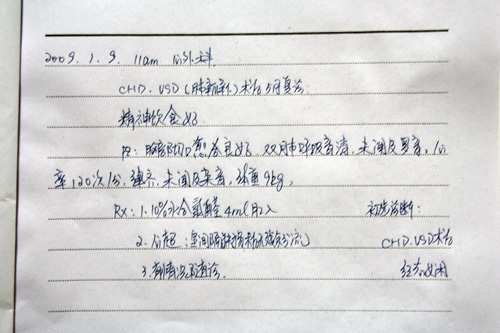 2009.1.9. 11am 心外科
CHD.VSD(膜部)术后 月复诊
精神饮食好
PE:胸部切口愈合良好,双肺呼吸音清,未闻及罗音,心
率120次/分,律齐,未闻及杂音,体重9kg。
Rx:1.10%水合氯醛4ml口入 初步诊断:
2.心超:室间隔修补术后无残余分流 CHD.VSD术后
3. 随诊.